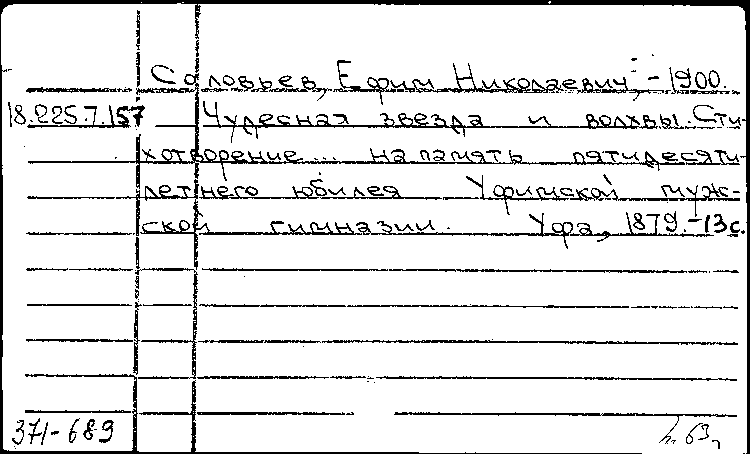 Соловьев, Ефим Николаевич, -1900.
18.225.7.157 Чудесная звезда и волхвы. Сти-
хотворение... на память пятидесяти-
летнего юбилея Уфимской муж-
ской гимназии. Уфа, 1879.-13с.
371-689